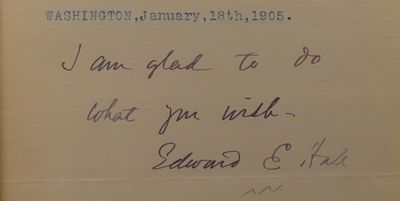 WASHINGTON,January,18th,1905.
I am glad to do
what you wish -
Edward E Hale